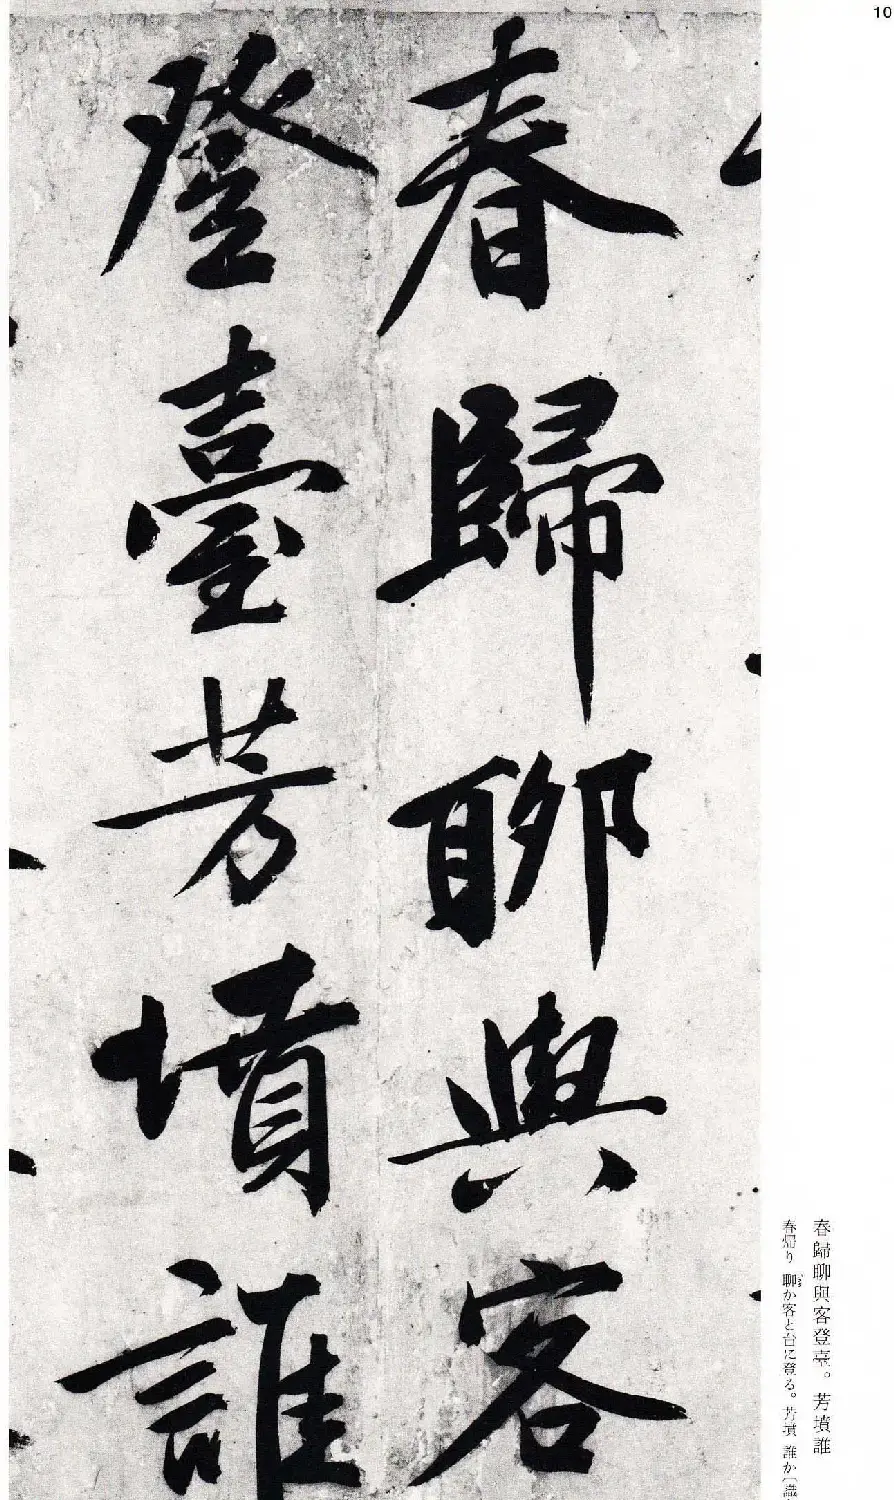 10
春歸聊與客
登臺芳墳誰
春歸聊與客登臺。芳墳誰
春帰り 聊か客と台に登る。芳墳 誰か〔識